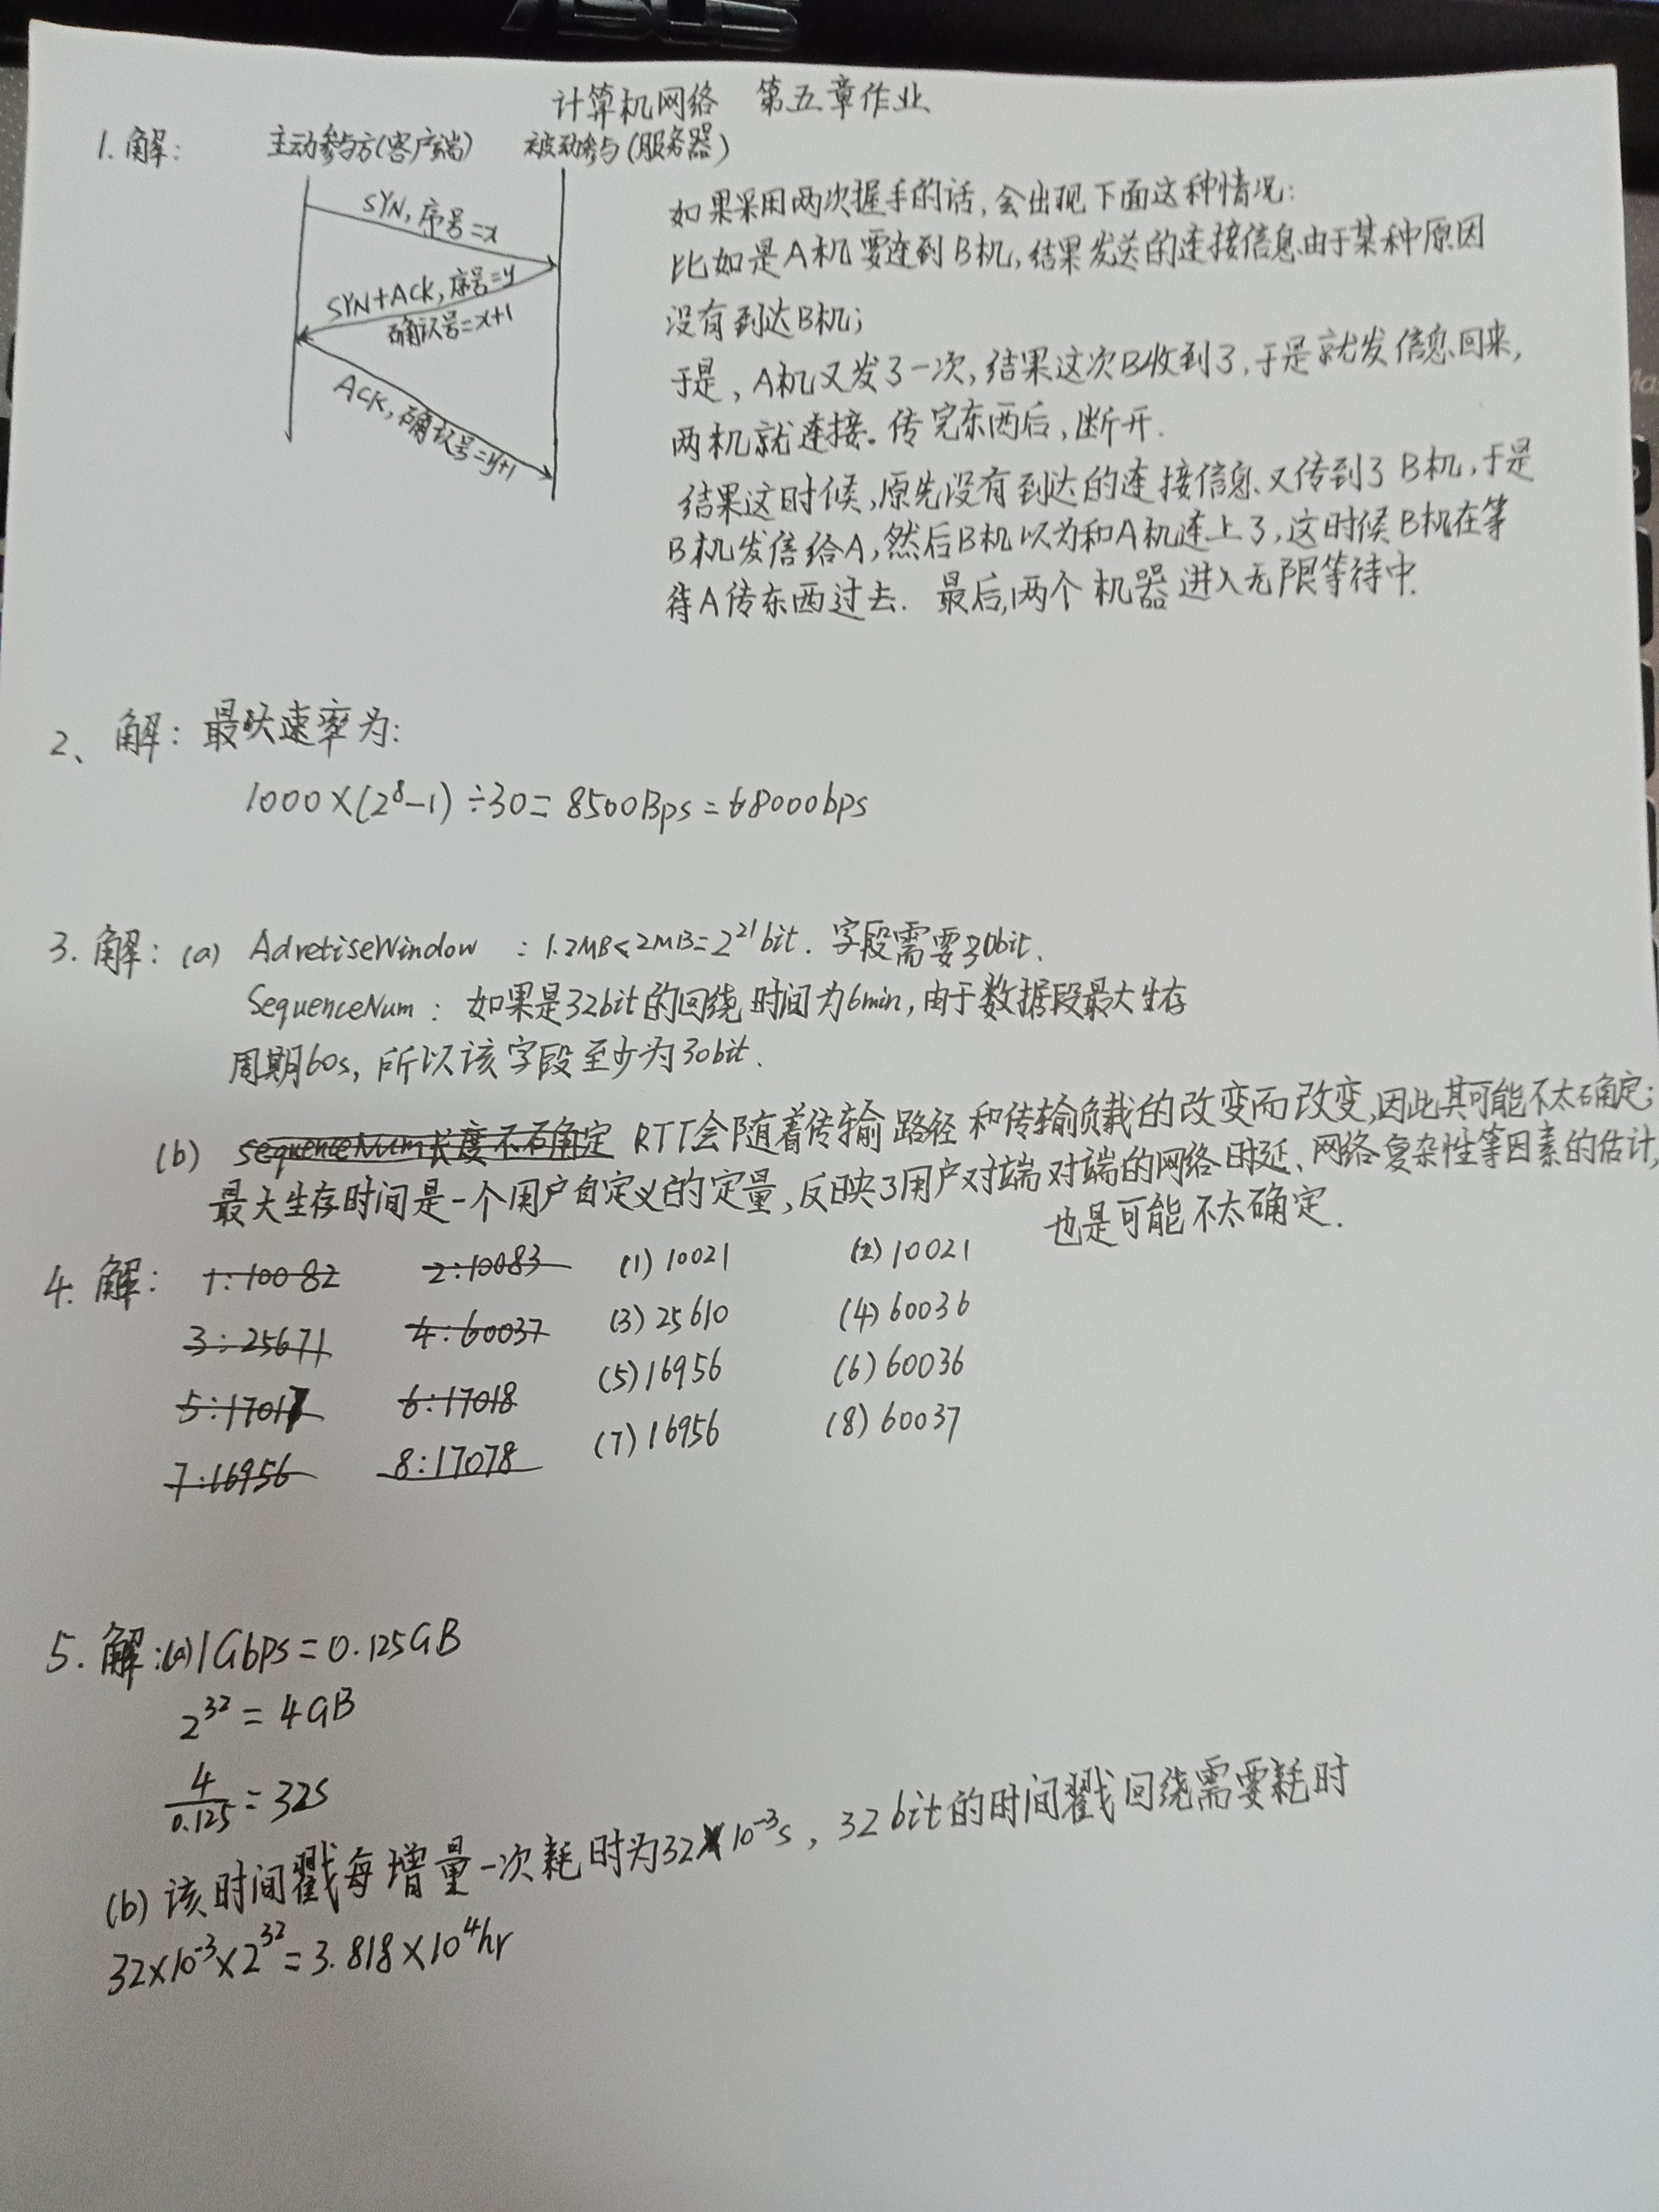 ASUS
计算机网络 第五章作业
1.解: 主动参与方(客户端) 被动参与(服务器)
SYN,序号=x
SYN+ACK,序号=y
确认号=x+1
ACK,确认号=y+1
如果采用两次握手的话,会出现下面这种情况:
比如是A机要连到B机,结果发送的连接信息由于某种原因
没有到达B机;
于是,A机又发了一次,结果这次B收到了,于是就发信息回来,
两机就连接。传完东西后,断开.
结果这时候,原先没有到达的连接信息又传到了B机,于是
B机发信给A,然后B机以为和A机连上了,这时候B机在等
待A传东西过去. 最后,两个机器进入无限等待中.
2、解:最大速率为:
1000×(2⁸-1)÷30=8500Bps=68000bps
3.解:(a) AdvetiseWindow :1.2MB<2MB=2²¹bit.字段需要30bit.
SequenceNum:如果是32bit的回绕时间为6min,由于数据段最大生存
周期60s,所以该字段至少为30bit.
(b) sequenceNum长度不石角定 RTT会随着传输路径和传输负载的改变而改变,因此其可能不太确定;
最大生存时间是一个用户自定义的定量,反映了用户对端对端的网络时延、网络复杂性等因素的估计,
也是可能不太确定.
4.解: 1:10082 2:10083 (1)10021 (2)10021
3:25671 4:60037 (3)25610 (4)60036
5:17017 6:17018 (5)16956 (6)60036
7:16956 8:17078 (7)16956 (8)60037
5.解:(a)1Gbps=0.125GB
2³²=4GB
4/0.125=32s
(b)该时间戳每增量一次耗时为32×10⁻³s,32bit的时间戳回绕需要耗时
32×10⁻³×2³²=3.818×10⁴hr